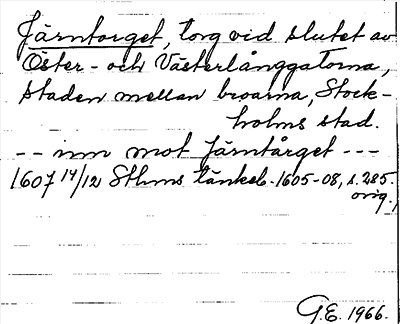 Järntorget, torg vid slutet av
Öster- och Västerlånggatorna,
staden mellan broarna, Stock-
holms stad.
-- inn mot Järntårget ---
1607 14/12 Sthms tänkeb. 1605-08, s. 285.
orig.
G.E. 1966.